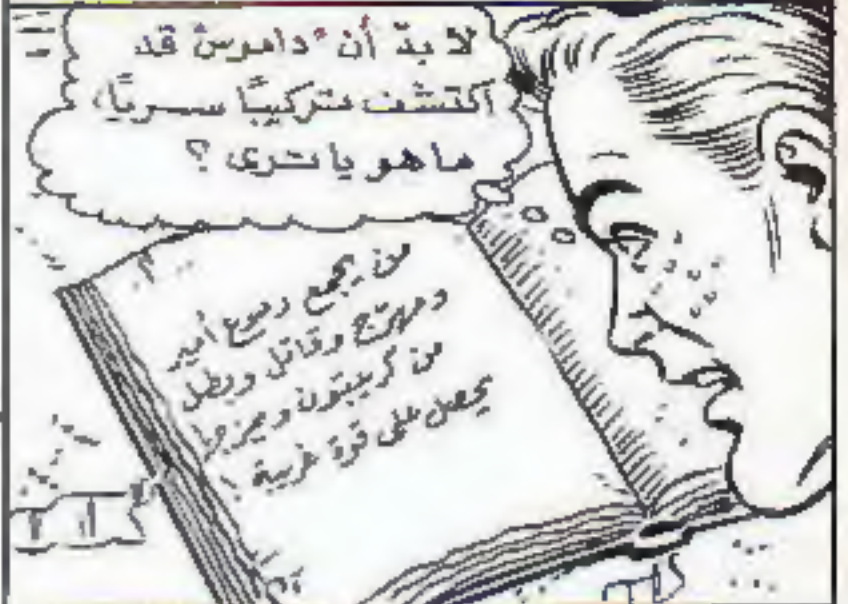 لا بدّ أن "داموس" قد
اكتشف متركيبًا سريًا،
ما هو يا ترى ؟
من يجمع دموع أمير
ومهرّج وقاتل وبطل
من كريبتون ويمزجها
يحصل على قوة غريبة !